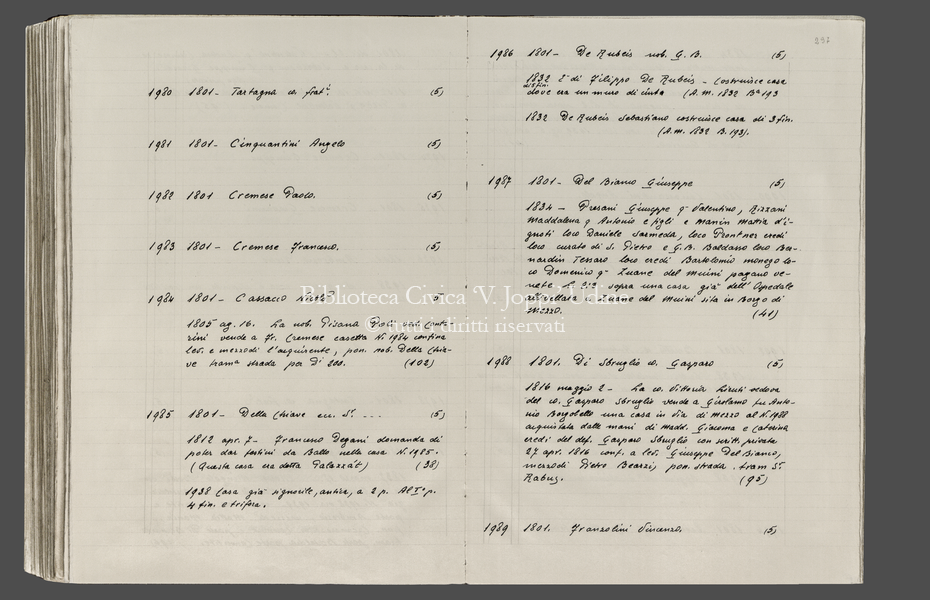 1980 1801 - Tartagna co. frat.i (5)
1981 1801 - Cinquantini Angelo (5)
1982 1801 Cremese Paolo. (5)
1983 1801 - Cremese Francesco. (5)
1984 1801 - Cassacco Nicolò 5
1805 ag. 16. La nob. Pisana
rini vende a Fr. Cremese casetta N. 1984 confina
lev. e mezzodì l'acquirente, pon. nob. Della Chia-
ve tram.a strada per D.i 200. (102)
1985 1801 - Della Chiave ... (5)
1812 apr. 7 - Francesco Degani domanda di
poter dar festini da Ballo nella casa N. 1985.
(Questa casa era detta Palazzàt) (38)
1938 Casa già signorile, antica, a 2 p. Al I° p.
4 fin. e trifora.
297
1986 1801 - De Rubeis nob. G. B. (5)
1832 È di Filippo De Rubeis - Costruisce casa
di 5 fin.
dove era un muro di cinta (A. m. 1832 B.a 193
1832 De Rubeis Sebastiano costruisce casa di 3 fin.
(A. m. 1832 B. 193).
1987 1801 - Del Bianco Giuseppe (5)
1834 - Presani Giuseppe q. Valentino, Rizzani
Maddalena q. Antonio e figli e Manin Mattia d'i-
gnoti loco Daniele Sarmeda, loco Prontner eredi
loco curato di S. Pietro e G. B. Baldasso loco Ber-
nardin Tesaro loco eredi Bartolomio monego lo-
co Domenico q. Zuane del Muini pagano ve-
nete L. sopra una casa già dell'Ospedale
del Muini sita in Borgo di
Mezzo. (41)
1988 1801. Di Sbruglio co. Gasparo (5)
1816 maggio 2 - La co. Vittoria Liruti vedova
del co. Gasparo Sbruglio vende a Girolamo fu Anto-
nio Borgobello una casa in Via di Mezzo al N. 1988
acquistata dalle mani di madd. Giacoma e Caterina
eredi del def. Gasparo Sbruglio con scritt. privata
27 apr. 1816 conf. a lev. Giuseppe Del Bianco,
mezzodì Pietro Bearzi, pon. strada. tram S.r
Rabus. (95)
1989 1801. Franzolini Vincenzo. (5)
Biblioteca Civica 'V. Joppi' Udine
© tutti i diritti riservati